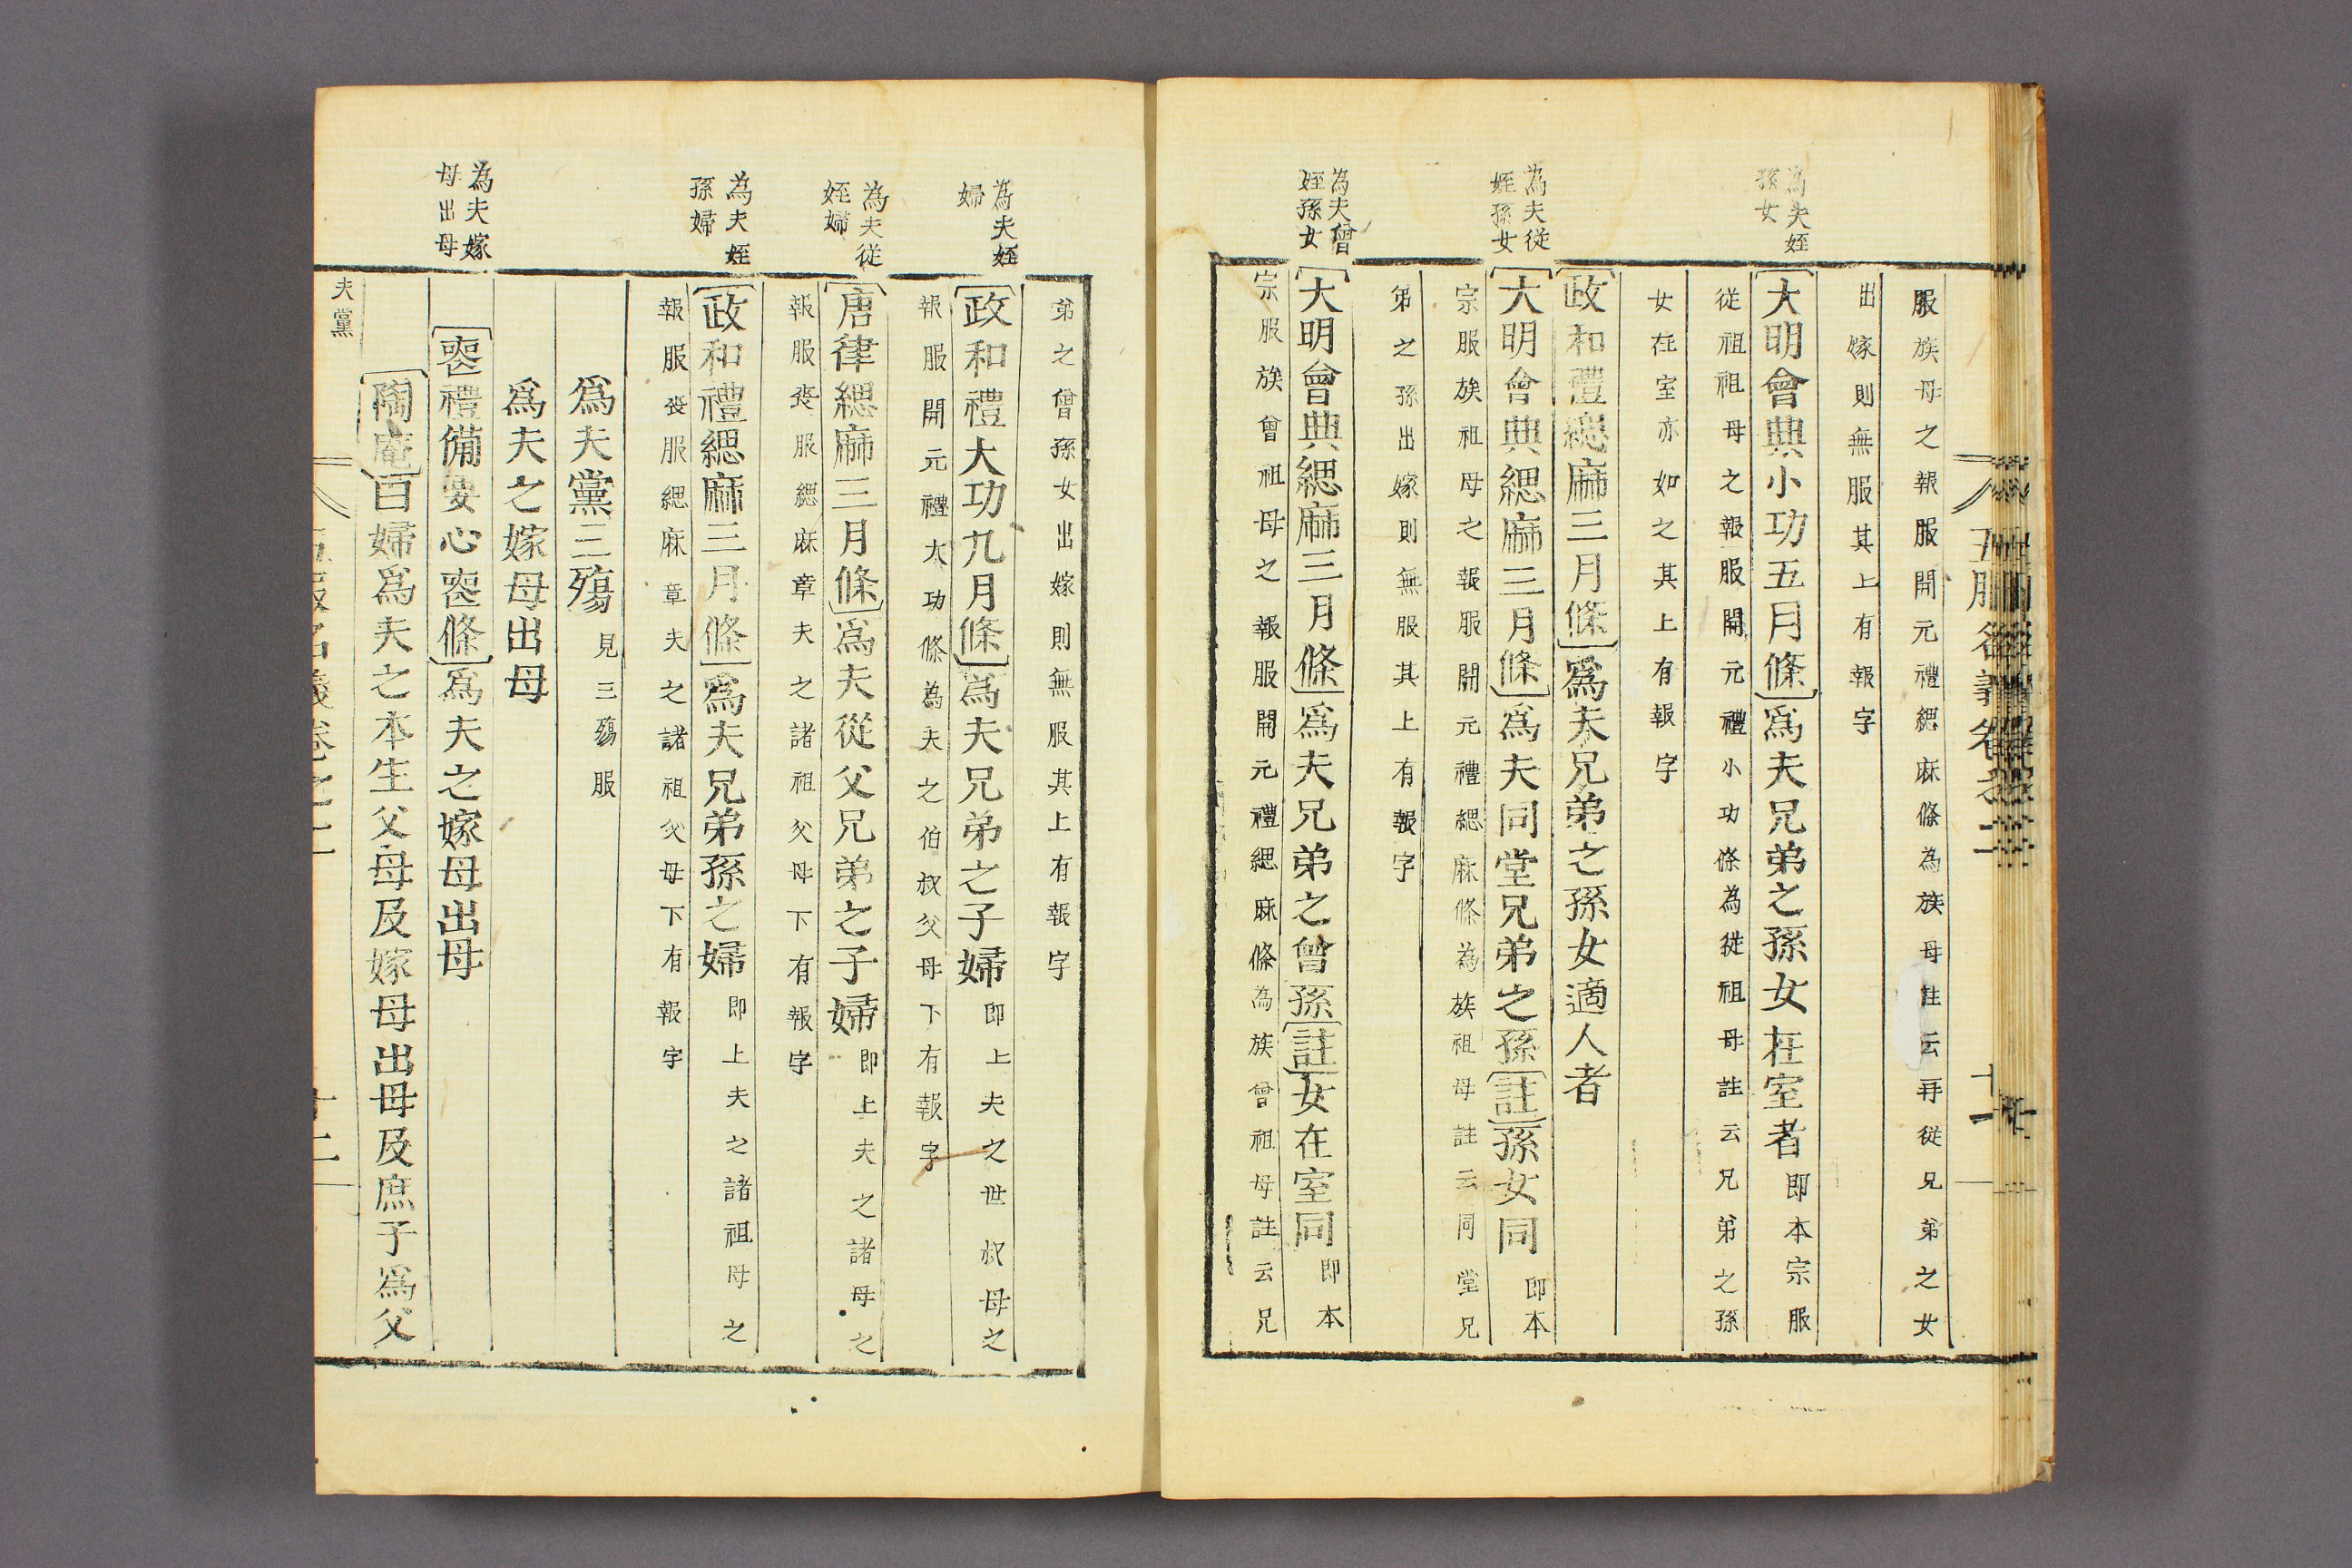 為夫姪
孫女
為夫従
姪孫女
為夫曾
姪孫女
服族母之報服開元禮緦麻條為族母註云再從兄弟之女
出嫁則無服其上有報字
大明會典小功五月條為夫兄弟之孫女在室者即本宗服
従祖祖母之報服開元禮小功條為従祖母註云兄弟之孫
女在室亦如之其上有報字
政和禮緦麻三月條為夫兄弟之孫女適人者
大明會典緦麻三月條為夫同堂兄弟之孫註孫女同即本
宗服族祖母之報服開元禮緦麻條為族祖母註云同堂兄
弟之孫出嫁則無服其上有報字
大明會典緦麻三月條為夫兄弟之曾孫註女在室同即本
宗服族曾祖母之報服開元禮緦麻條為族曾祖母註云兄
為夫姪
婦
為夫従
姪婦
為夫姪
孫婦
為夫嫁
母出母
弟之曾孫女出嫁則無服其上有報字
政和禮大功九月條為夫兄弟之子婦即上夫之世叔母之
報服開元禮大功條為夫之伯叔父母下有報字
唐律緦麻三月條為夫從父兄弟之子婦即上夫之諸母之
報服喪服緦麻章夫之諸祖父母下有報字
政和禮緦麻三月條為夫兄弟孫之婦即上夫之諸祖母之
報服喪服緦麻章夫之諸祖父母下有報字
爲夫黨三殤見三殤服
爲夫之嫁母出母
喪禮備要心喪條爲夫之嫁母出母
陶庵曰婦爲夫之本生父母及嫁母出母及庶子爲父
夫黨